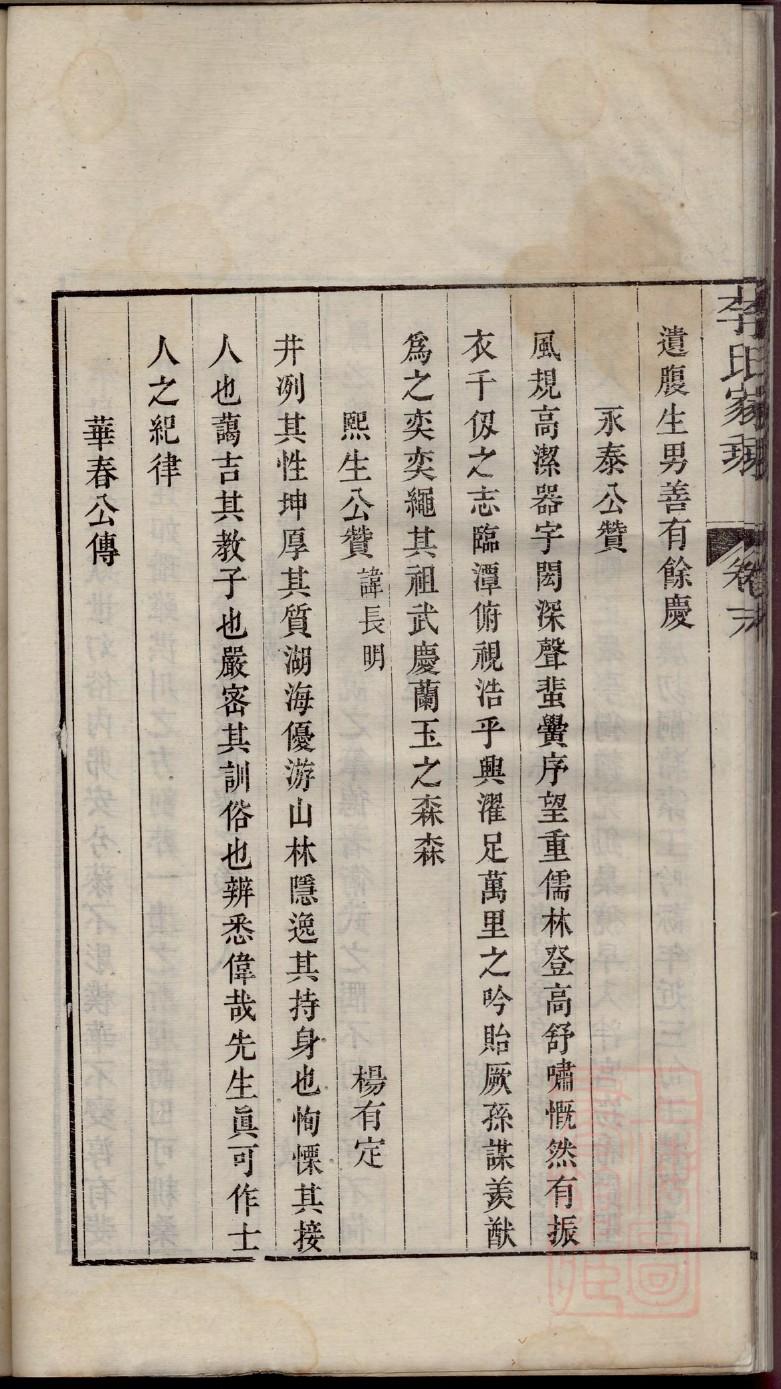 李氏家乘
卷之末
遺腹生男善有餘慶
永泰公贊
風規高潔器宇閎深聲蜚黌序望重儒林登高舒嘯慨然有振
衣千仭之志臨潭俯視浩乎興濯足萬里之吟貽厥孫謀羨猷
爲之奕奕繩其祖武慶蘭玉之森森
熙生公贊 諱長明 楊有定
井冽其性坤厚其質湖海優游山林隱逸其持身也恂慄其接
人也藹吉其教子也嚴密其訓俗也辨悉偉哉先生眞可作士
人之紀律
華春公傳